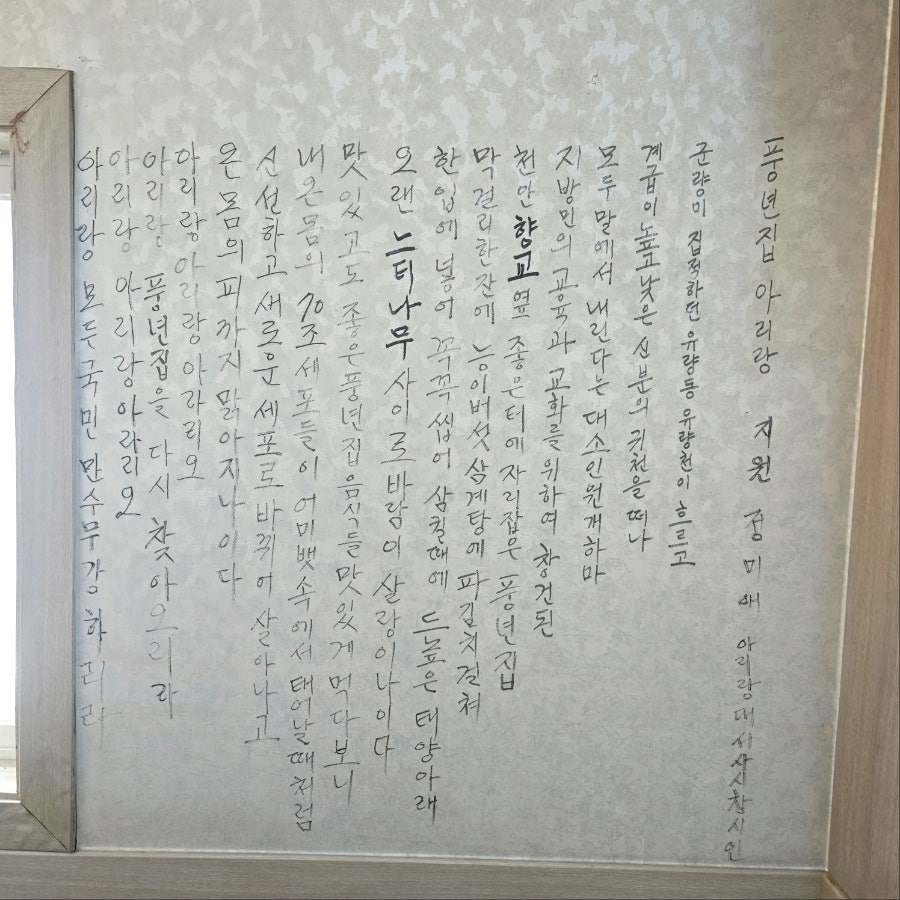 풍년집 아리랑 지원 공미애 아리랑대서사시참시인
군량미 집적하던 유량동 유량천이 흐르고
계급이높고낮은 신분의 귀천을떠나
모두말에서 내린다는 대소인원개하마
지방민의 교육과 교화를 위하여 창건된
천안향교옆 좋은터에자리잡은 풍년집
막걸리한잔에 능이버섯삼계탕에 파김치걸쳐
한입에넣어 꼭꼭씹어 삼킬때에 드높은 태양아래
오랜느티나무사이로바람이 살랑이나이다
맛있고도 좋은풍년집음식들맛있게먹다보니
내온몸의 70조세포들이 어미뱃속에서태어날때처럼
신선하고 새로운 세포로 바뀌어 살아나고
온몸의피까지 맑아지나이다
아리랑아리랑아라리오
아리랑 풍년집을 다시 찾아오리라
아리랑 아리랑아라리오
아리랑 모든국민 만수무강하리라